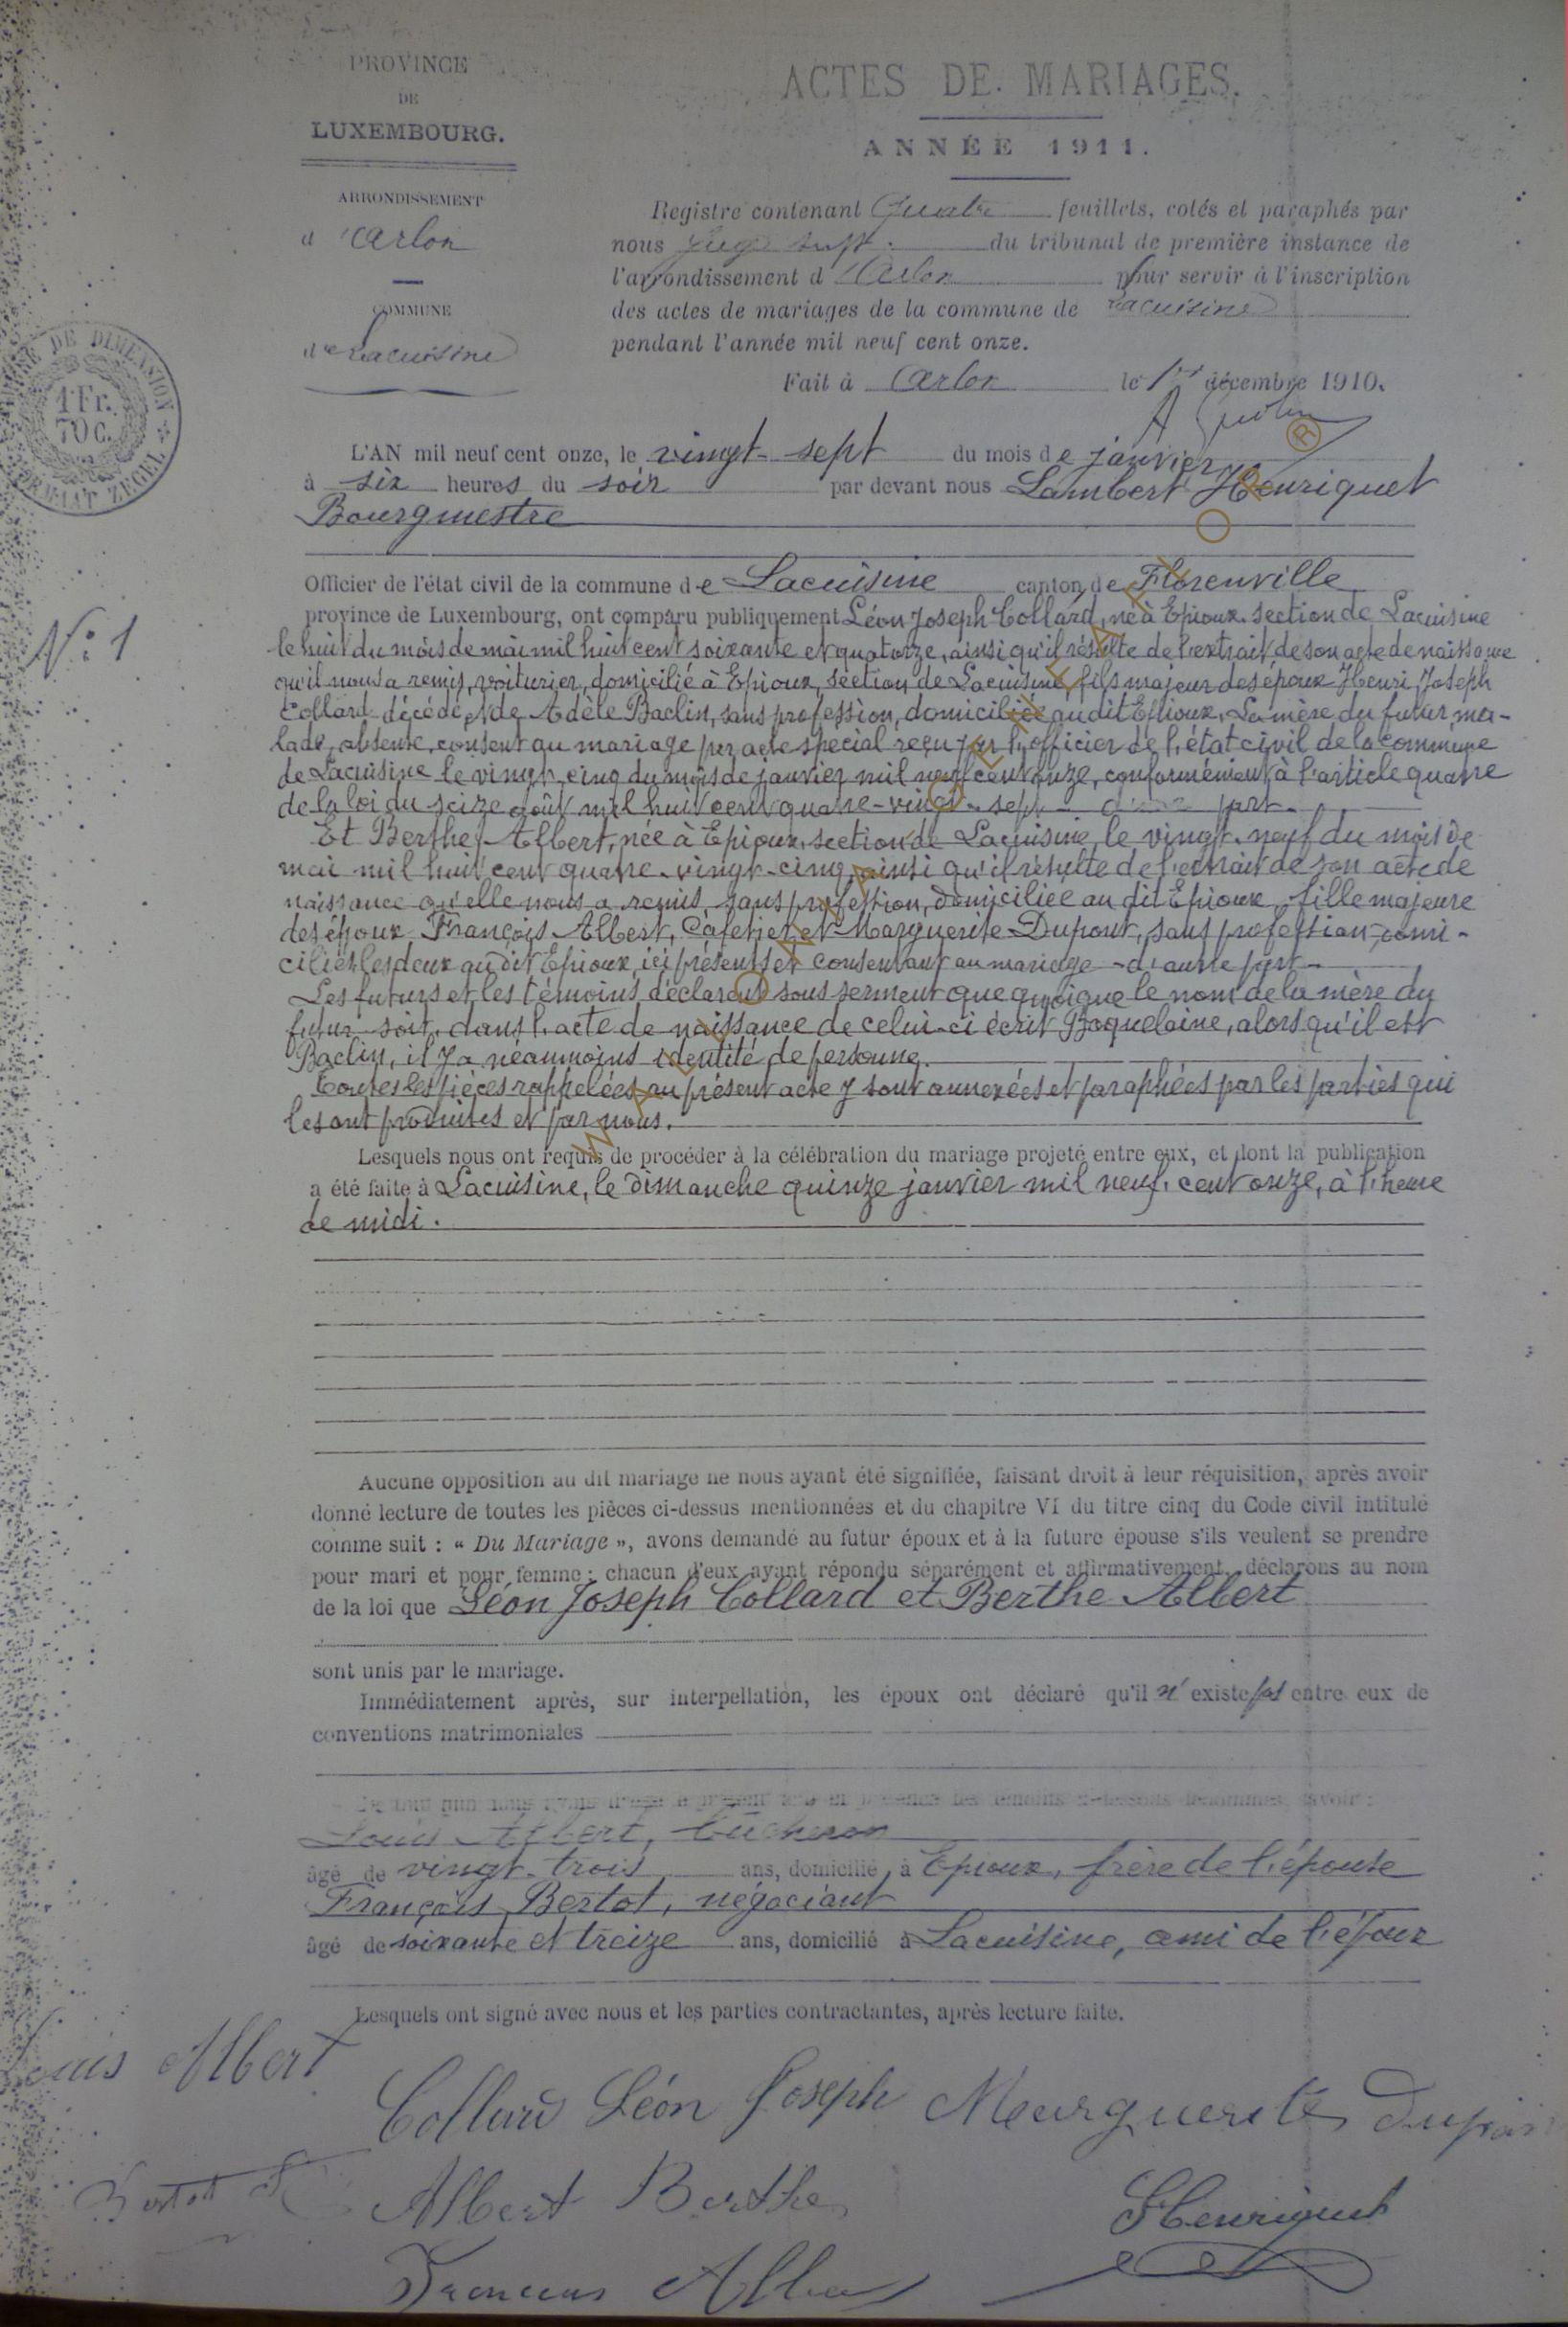 PROVINCE
DE
LUXEMBOURG.
ARRONDISSEMENT
d'Arlon
COMMUNE
de Lacuisine
ACTES DE MARIAGES.
ANNÉE 1911.
Registre contenant Quatre feuillets, cotés et paraphés par
nous Juge supt. du tribunal de première instance de
l'arrondissement d'Arlon pour servir à l'inscription
des actes de mariages de la commune de Lacuisine
pendant l'année mil neuf cent onze.
Fait à Arlon le 1er décembre 1910.
DE DIMENSION
1 Fr.
70 c.
FORMAAT ZEGEL
N° 1
L'AN mil neuf cent onze, le vingt-sept du mois de janvier
à six heures du soir par devant nous Lambert Henriquet
Bourgmestre
Officier de l'état civil de la commune de Lacuisine canton de Florenville
province de Luxembourg, ont comparu publiquement Léon Joseph Collard, né à Epioux, section de Lacuisine
le huit du mois de mai mil huit cent soixante et quatorze, ainsi qu'il résulte de l'extrait de son acte de naissance
qu'il nous a remis, voiturier, domicilié à Epioux, section de Lacuisine, fils majeur des époux Henri Joseph
Collard décédé, et de Adèle Baclin, sans profession, domiciliée au dit Epioux. La mère du futur, ma-
lade, absente, consent au mariage par acte spécial reçu par l'officier de l'état civil de la commune
de Lacuisine le vingt-cinq du mois de janvier mil neuf cent onze, conformément à l'article quatre
de la loi du seize août mil huit cent quatre-vingt-sept - d'une part.
Et Berthe Albert, née à Epioux, section de Lacuisine, le vingt-neuf du mois de
mai mil huit cent quatre-vingt-cinq, ainsi qu'il résulte de l'extrait de son acte de
naissance qu'elle nous a remis, sans profession, domiciliée au dit Epioux, fille majeure
des époux François Albert, Cafetier et Marguerite Dupont, sans profession, domi-
ciliés les deux au dit Epioux, ici présents et consentant au mariage - d'autre part -
Les futurs et les témoins déclarent sous serment que quoique le nom de la mère du
futur soit, dans l'acte de naissance de celui-ci écrit Boquelaine, alors qu'il est
Baclin, il y a néanmoins identité de personne.
Toutes les pièces rappelées au présent acte y sont annexées et paraphées par les parties qui
les ont produites et par nous.
Lesquels nous ont requis de procéder à la célébration du mariage projeté entre eux, et dont la publication
a été faite à Lacuisine, le dimanche quinze janvier mil neuf cent onze, à l'heure
de midi.
Aucune opposition au dit mariage ne nous ayant été signifiée, faisant droit à leur réquisition, après avoir
donné lecture de toutes les pièces ci-dessus mentionnées et du chapitre VI du titre cinq du Code civil intitulé
comme suit : « Du Mariage », avons demandé au futur époux et à la future épouse s'ils veulent se prendre
pour mari et pour femme ; chacun d'eux ayant répondu séparément et affirmativement, déclarons au nom
de la loi que Léon Joseph Collard et Berthe Albert
sont unis par le mariage.
Immédiatement après, sur interpellation, les époux ont déclaré qu'il n'existe pas entre eux de
conventions matrimoniales
De tout quoi nous avons dressé le présent acte en présence des témoins ci-dessous dénommés, savoir :
Louis Albert, bûcheron
âgé de vingt-trois ans, domicilié à Epioux, frère de l'épouse
François Bertot, négociant
âgé de soixante et treize ans, domicilié à Lacuisine, ami de l'époux
Lesquels ont signé avec nous et les parties contractantes, après lecture faite.
Louis Albert
Collard Léon Joseph Marguerite Dupont
Bertot F
Albert Berthe
LHenriquet
Francois Albert